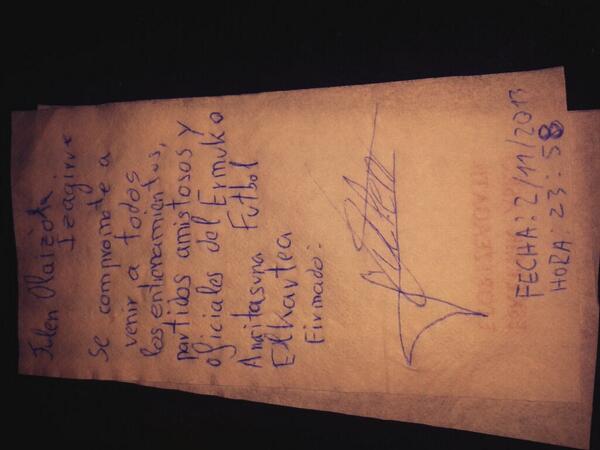 Julen Olaizola
Izagirre
Se compromete a
venir a todos
los entrenamientos,
partidos amistosos y
oficiales del Ermuko
Anaitasuna Futbol
Elkartea
Firmado:
FECHA: 2/11/2013
HORA: 23:58